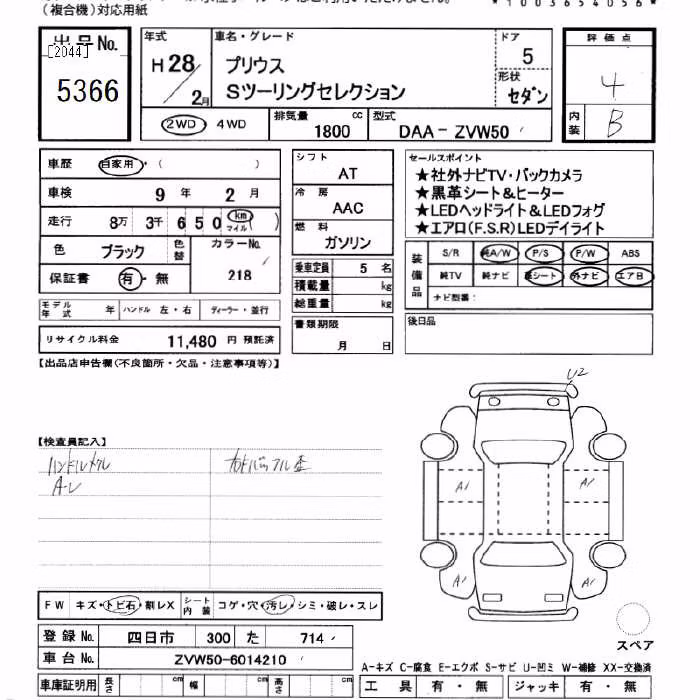 (複合機)対応用紙
*1003654056*
出品No.
[2044]
5366
年式
H28
2月
車名・グレード
プリウス
Sツーリングセレクション
ドア
5
形状
セダン
評価点
4
内装
B
2WD・4WD
排気量
1800
cc
型式
DAA-ZVW50
車歴
自家用・( )
車検
9 年 2 月
走行
8万 3千 6 5 0 km マイル ( )
色
ブラック
色替
カラーNo.
218
保証書
有・無
シフト
AT
冷房
AAC
燃料
ガソリン
乗車定員 5 名
積載量 kg
総重量 kg
セールスポイント
★社外ナビTV・バックカメラ
★黒革シート&ヒーター
★LEDヘッドライト&LEDフォグ
★エアロ(F.S.R)LEDデイライト
装備品
S/R 純A/W P/S P/W ABS
純TV 純ナビ 革シート 外ナビ エアB
ナビ型番:
モデル年式 年 ハンドル 左・右 ディーラー・並行
リサイクル料金 11,480 円 預託済
書類期限
月 日
後日品
【出品店申告欄(不良箇所・欠品・注意事項等)】
【検査員記入】
A-レ
U2
A1 A1
A1 A1
FW キズ・トビ石・割レX
シート内装 コゲ・穴・汚レ・シミ・破レ・スレ
登録No. 四日市 300 た 714
車台No. ZVW50-6014210
車庫証明用 長さ cm 幅 cm 高さ cm
スペア
A-キズ C-腐食 E-エクボ S-サビ U-凹ミ W-補修 XX-交換済
工具 有・無 ジャッキ 有・無